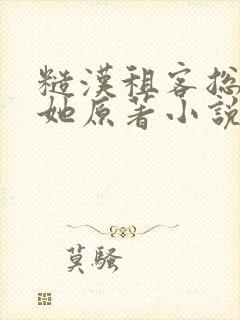 糙漢租客總
她原著小說
莫騷